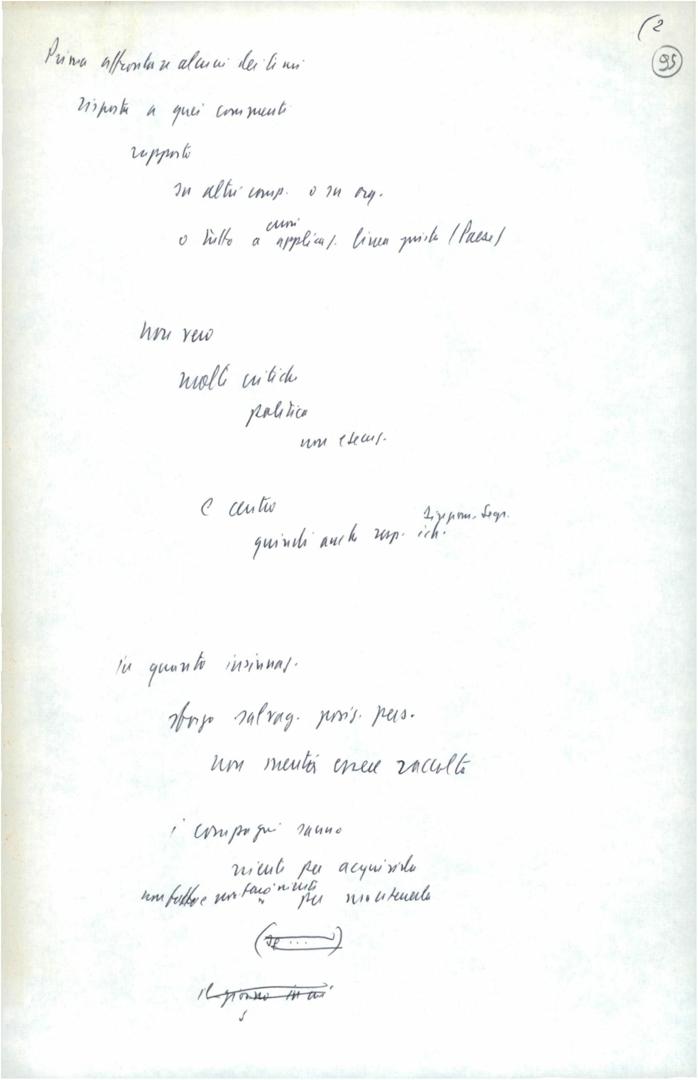 (2
95
Prima affrontare alcuni dei temi
risposta a quei commenti
rapporto
su altri comp. o su org.
o tutto a applicaz. linea giusta (Paese)
non vero
molte critiche
politica
non esecuz.
e centro
quindi anche resp.
in quanto insinuaz.
sforzo salvag. posiz. pers.
non merita essere raccolta
i compagni sanno
niente per acquisirla
non fatto e non farò niente
" per mantenerla